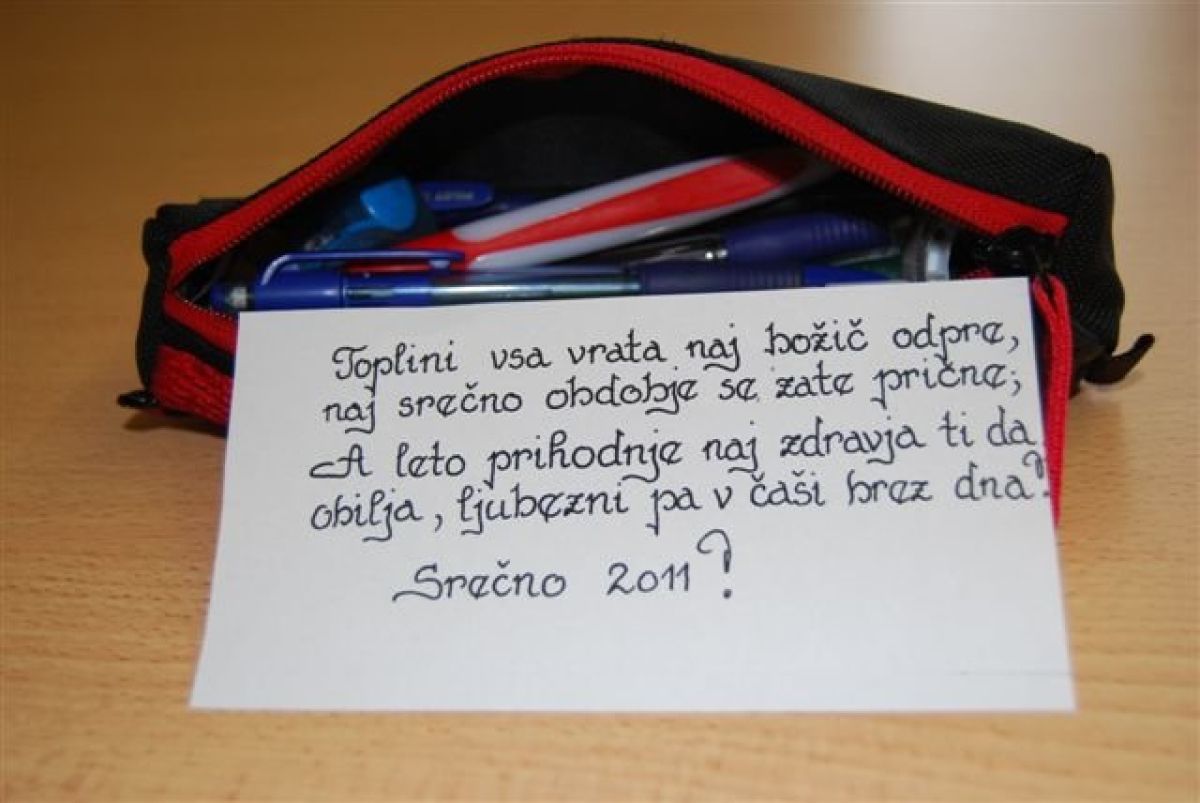 Toplini vsa vrata naj božič odpre,
naj srečno obdobje se zate prične;
A leto prihodnje naj zdravja ti da
obilja, ljubezni pa v čaši brez dna!
Srečno 2011!